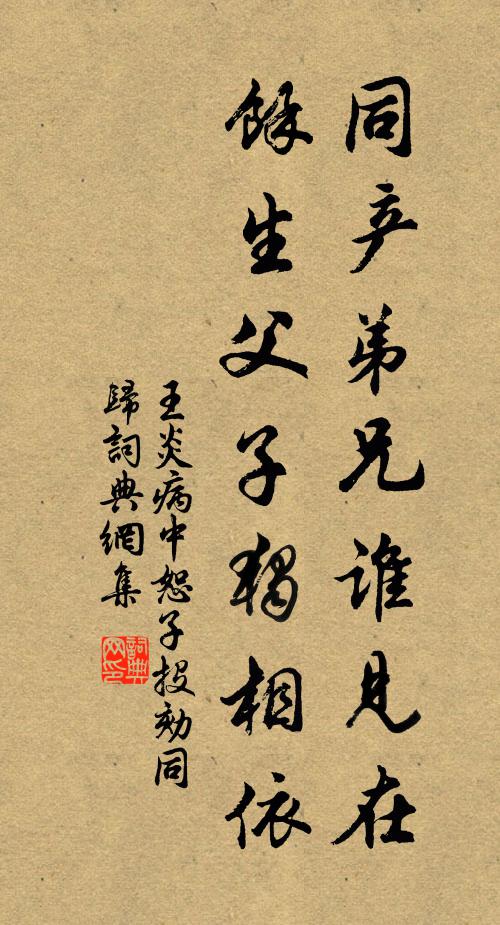 同产弟兄谁見在
餘生父子獨相依
王炎病中恕子投劾同
歸詞典網集
詞典
网印